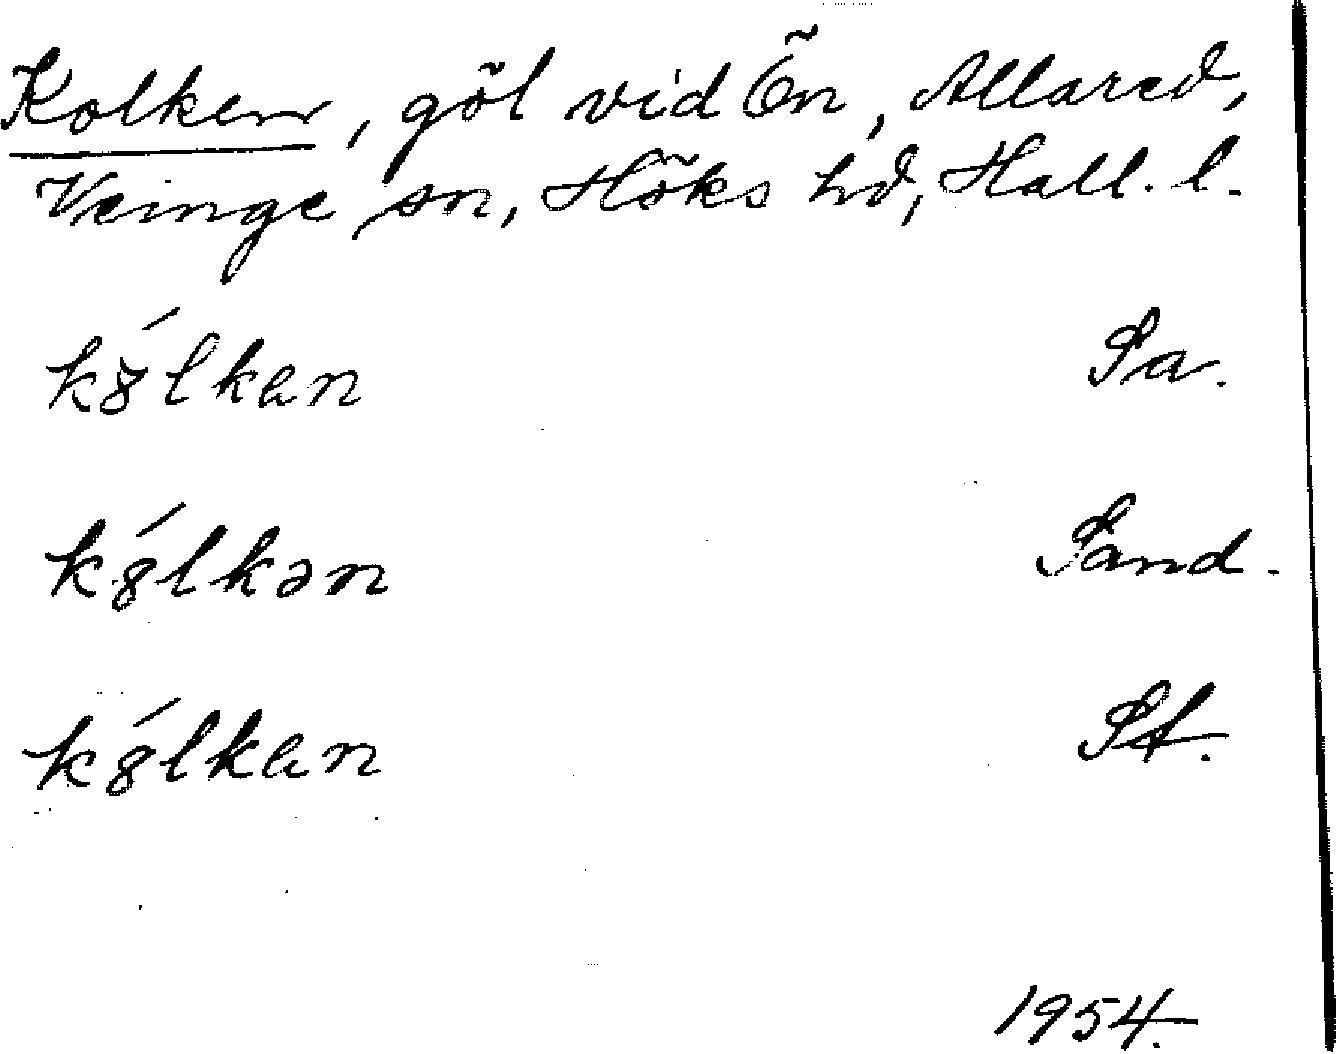 Kolken, göl vid Ön, Allared,
Veinge sn, Höks hd, Hall. l.
kȣ́lken Sa.
kȣ́lkən Sand.
kȣ́lken St.
1954.